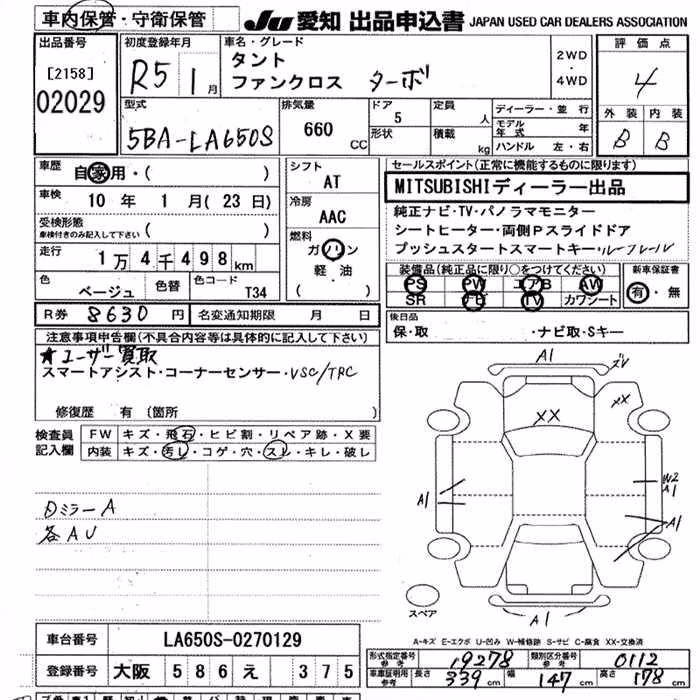 車内保管・守衛保管 JU 愛知 出品申込書 JAPAN USED CAR DEALERS ASSOCIATION
出品番号 初度登録年月 車名・グレード 評価点
[2158] R5 1月 タント 2WD・4WD 4
02029 ファンクロス ターボ
型式 排気量 ドア 定員 ディーラー・並行 外装 内装
5BA-LA650S 660 CC 5 人 モデル年式 年 B B
形状 積載 kg ハンドル 左・右
車歴 自家用・( ) シフト セールスポイント(正常に機能するものに限ります)
AT MITSUBISHIディーラー出品
車検 10年 1月(23日) 冷房 純正ナビ・TV・パノラマモニター
受検形態 車検付きのみ記入して下さい ( ) AAC シートヒーター・両側Pスライドドア
走行 1万4千498km 燃料 ガソリン プッシュスタートスマートキー・ルーフレール
軽・油 ( ) 装備品(純正品に限り○をつけてください) 新車保証書
色 ベージュ 色替 色コード T34 PS PW エアB AW 有・無
SR ナビ TV カワシート
R券 8630円 名変通知期限 月 日 後日品
注意事項申告欄(不具合内容等は具体的に記入して下さい) 保・取 ・ナビ取・Sキー
★ユーザー買取
スマートアシスト・コーナーセンサー・VSC/TRC
修復歴 有 (箇所 )
検査員記入欄 FW キズ・飛石・ヒビ割・リペア跡・X要
内装 キズ・汚レ・コゲ・穴・スレ・キレ・破レ
A1 ズレ
XX XX
A1 W2
A1
A1
A1
スペア
ミラーA
各AU
A-キズ E-エクボ U-凹み W-補修跡 S-サビ C-腐食 XX-交換済
車台番号 LA650S-0270129
形式指定番号 参考 19278 類別区分番号 参考 0112
登録番号 大阪 586 え 375
車庫証明用 参考 長さ 339cm 幅 147cm 高さ 178cm